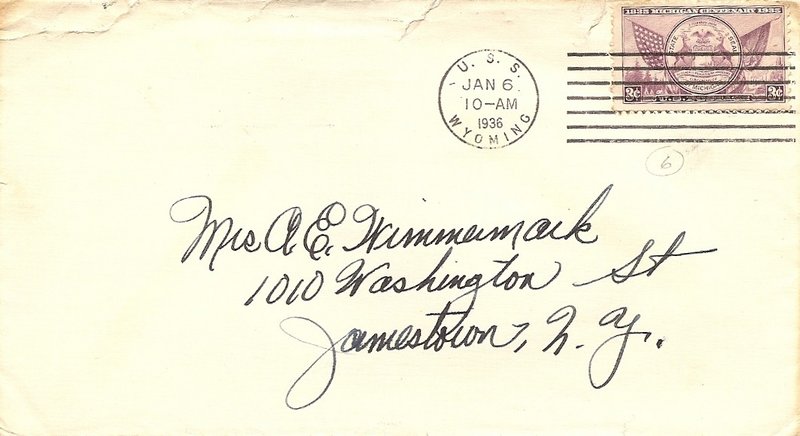 1835 MICHIGAN CENTENARY 1935
STATE SEAL
MICHIGAN
3¢ 3¢
U. S. S.
JAN 6
10-AM
1936
WYOMING
6
Mrs A. E. Wimmermark
1010 Washington St
Jamestown, N. Y.